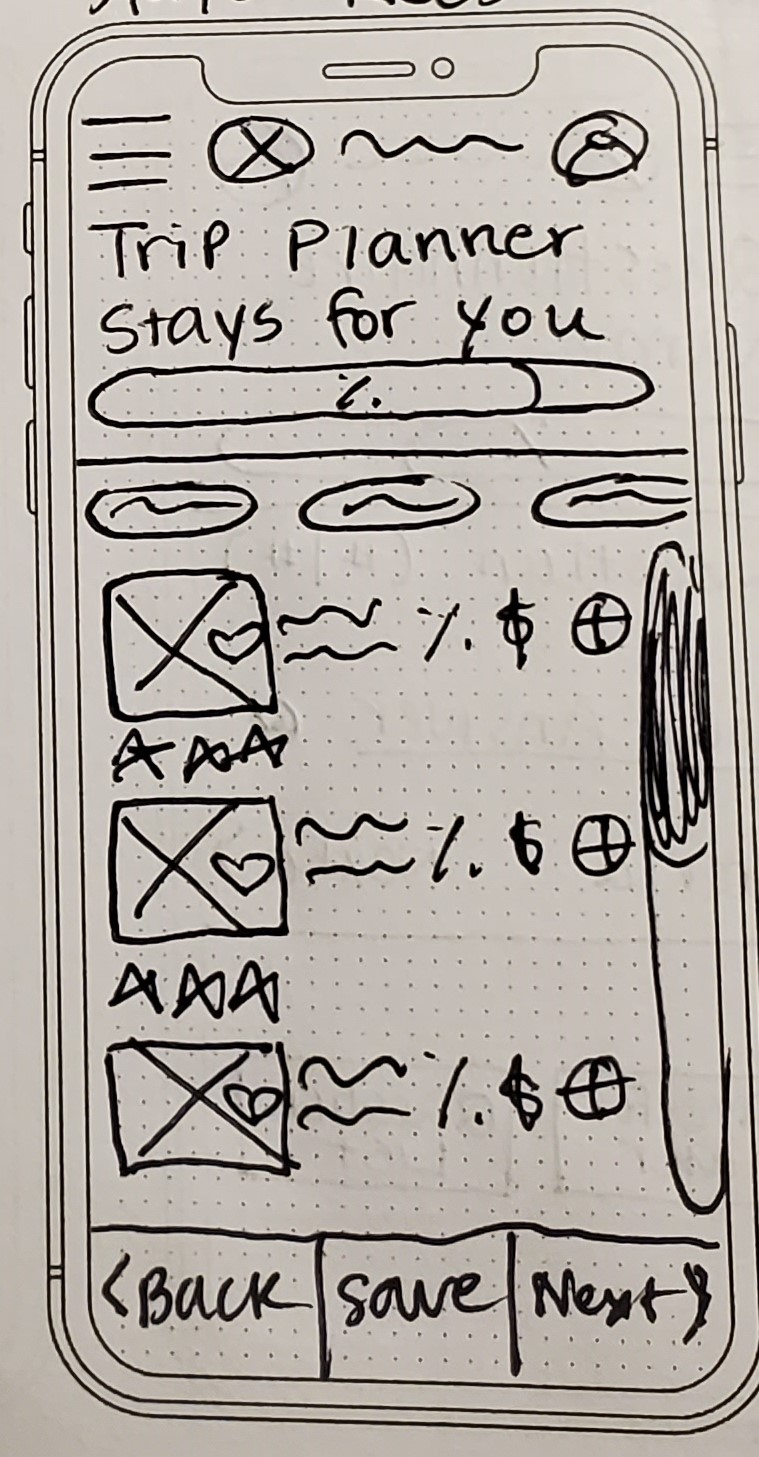 Trip Planner
Stays for you
%
% $
% $
% $
<Back save Next>